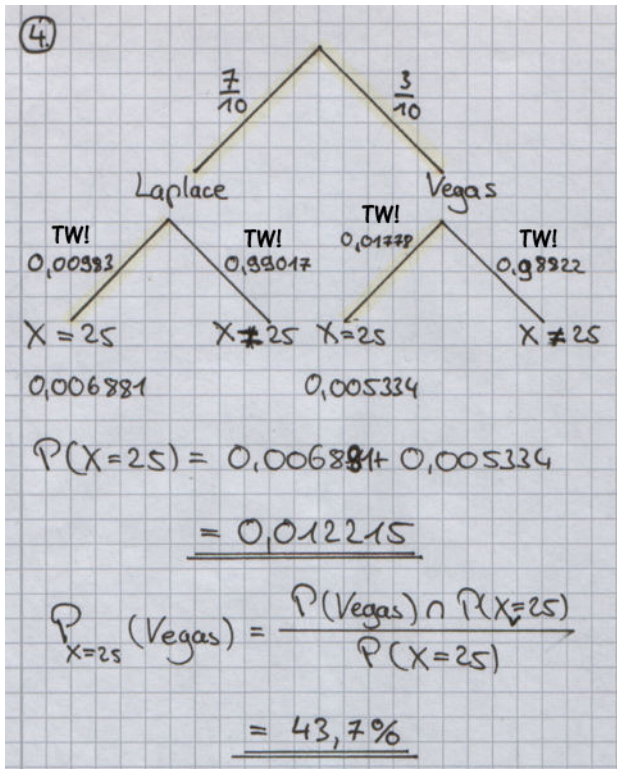 4.
7/10 3/10
Laplace Vegas
TW! TW! TW! TW!
0,00983 0,99017 0,01778 0,98822
X = 25 X ≠ 25 X=25 X ≠ 25
0,006881 0,005334
P(X=25) = 0,006881+ 0,005334
= 0,012215
P_{X=25} (Vegas) = P(Vegas) ∩ P(X=25) / P(X=25)
= 43,7%